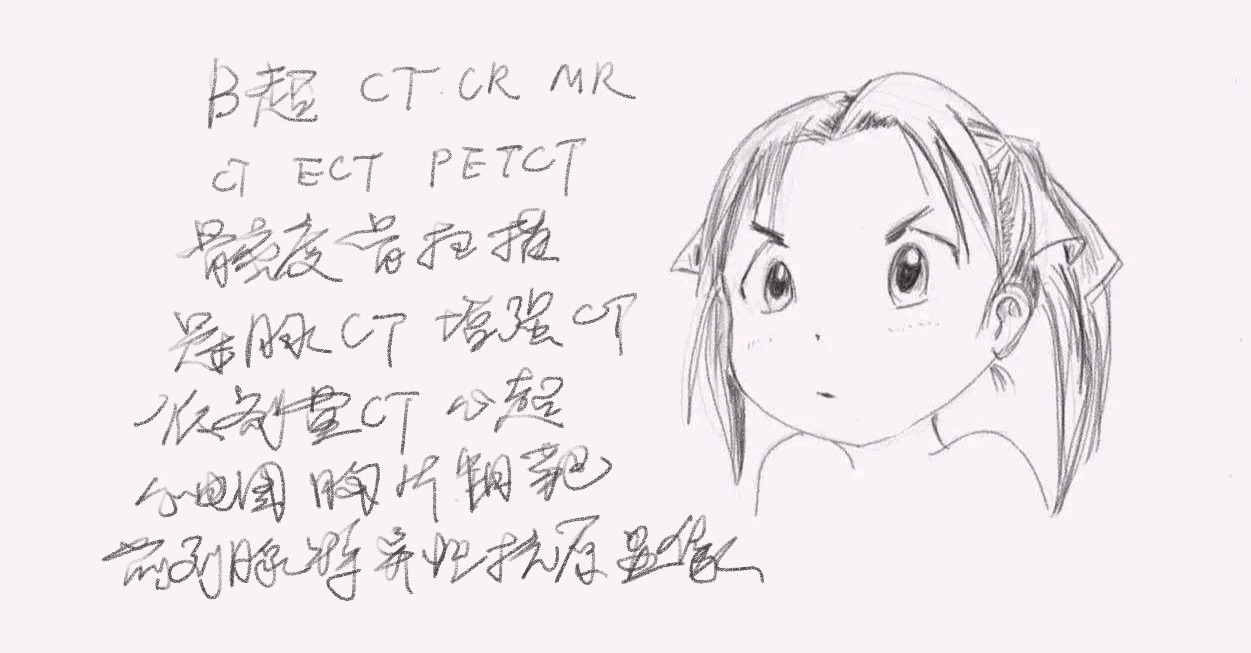 B超 CT.CR MR
CT ECT PETCT
骨密度骨扫描
是脉CT 增强CT
低剂量CT 心超
心电图 胸片 钼靶
前列脉特异性抗原显像